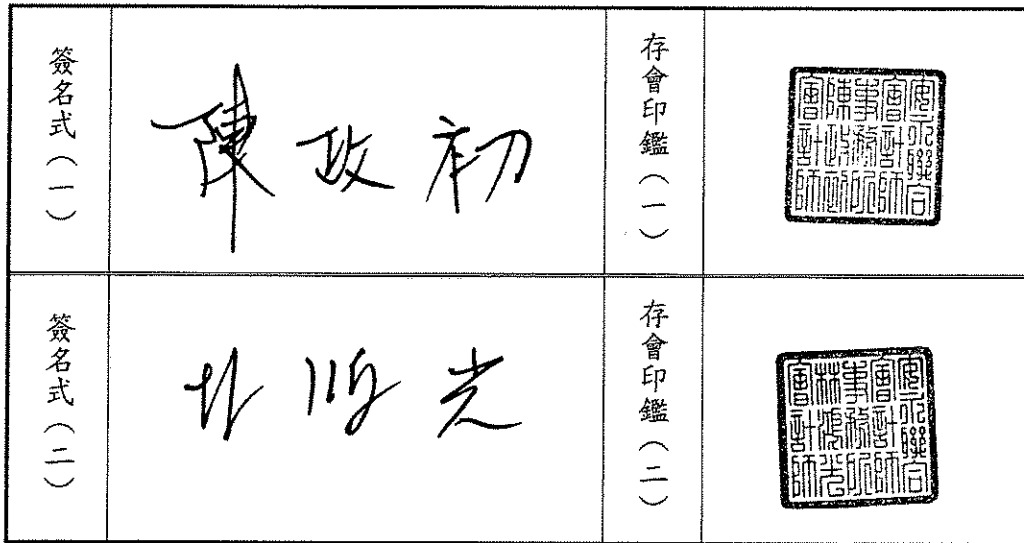 簽名式(一)
陳政初
存會印鑑(一)
安永聯合
會計師
事務所
陳政初
會計師
簽名式(二)
林鴻光
存會印鑑(二)
安永聯合
會計師
事務所
林鴻光
會計師